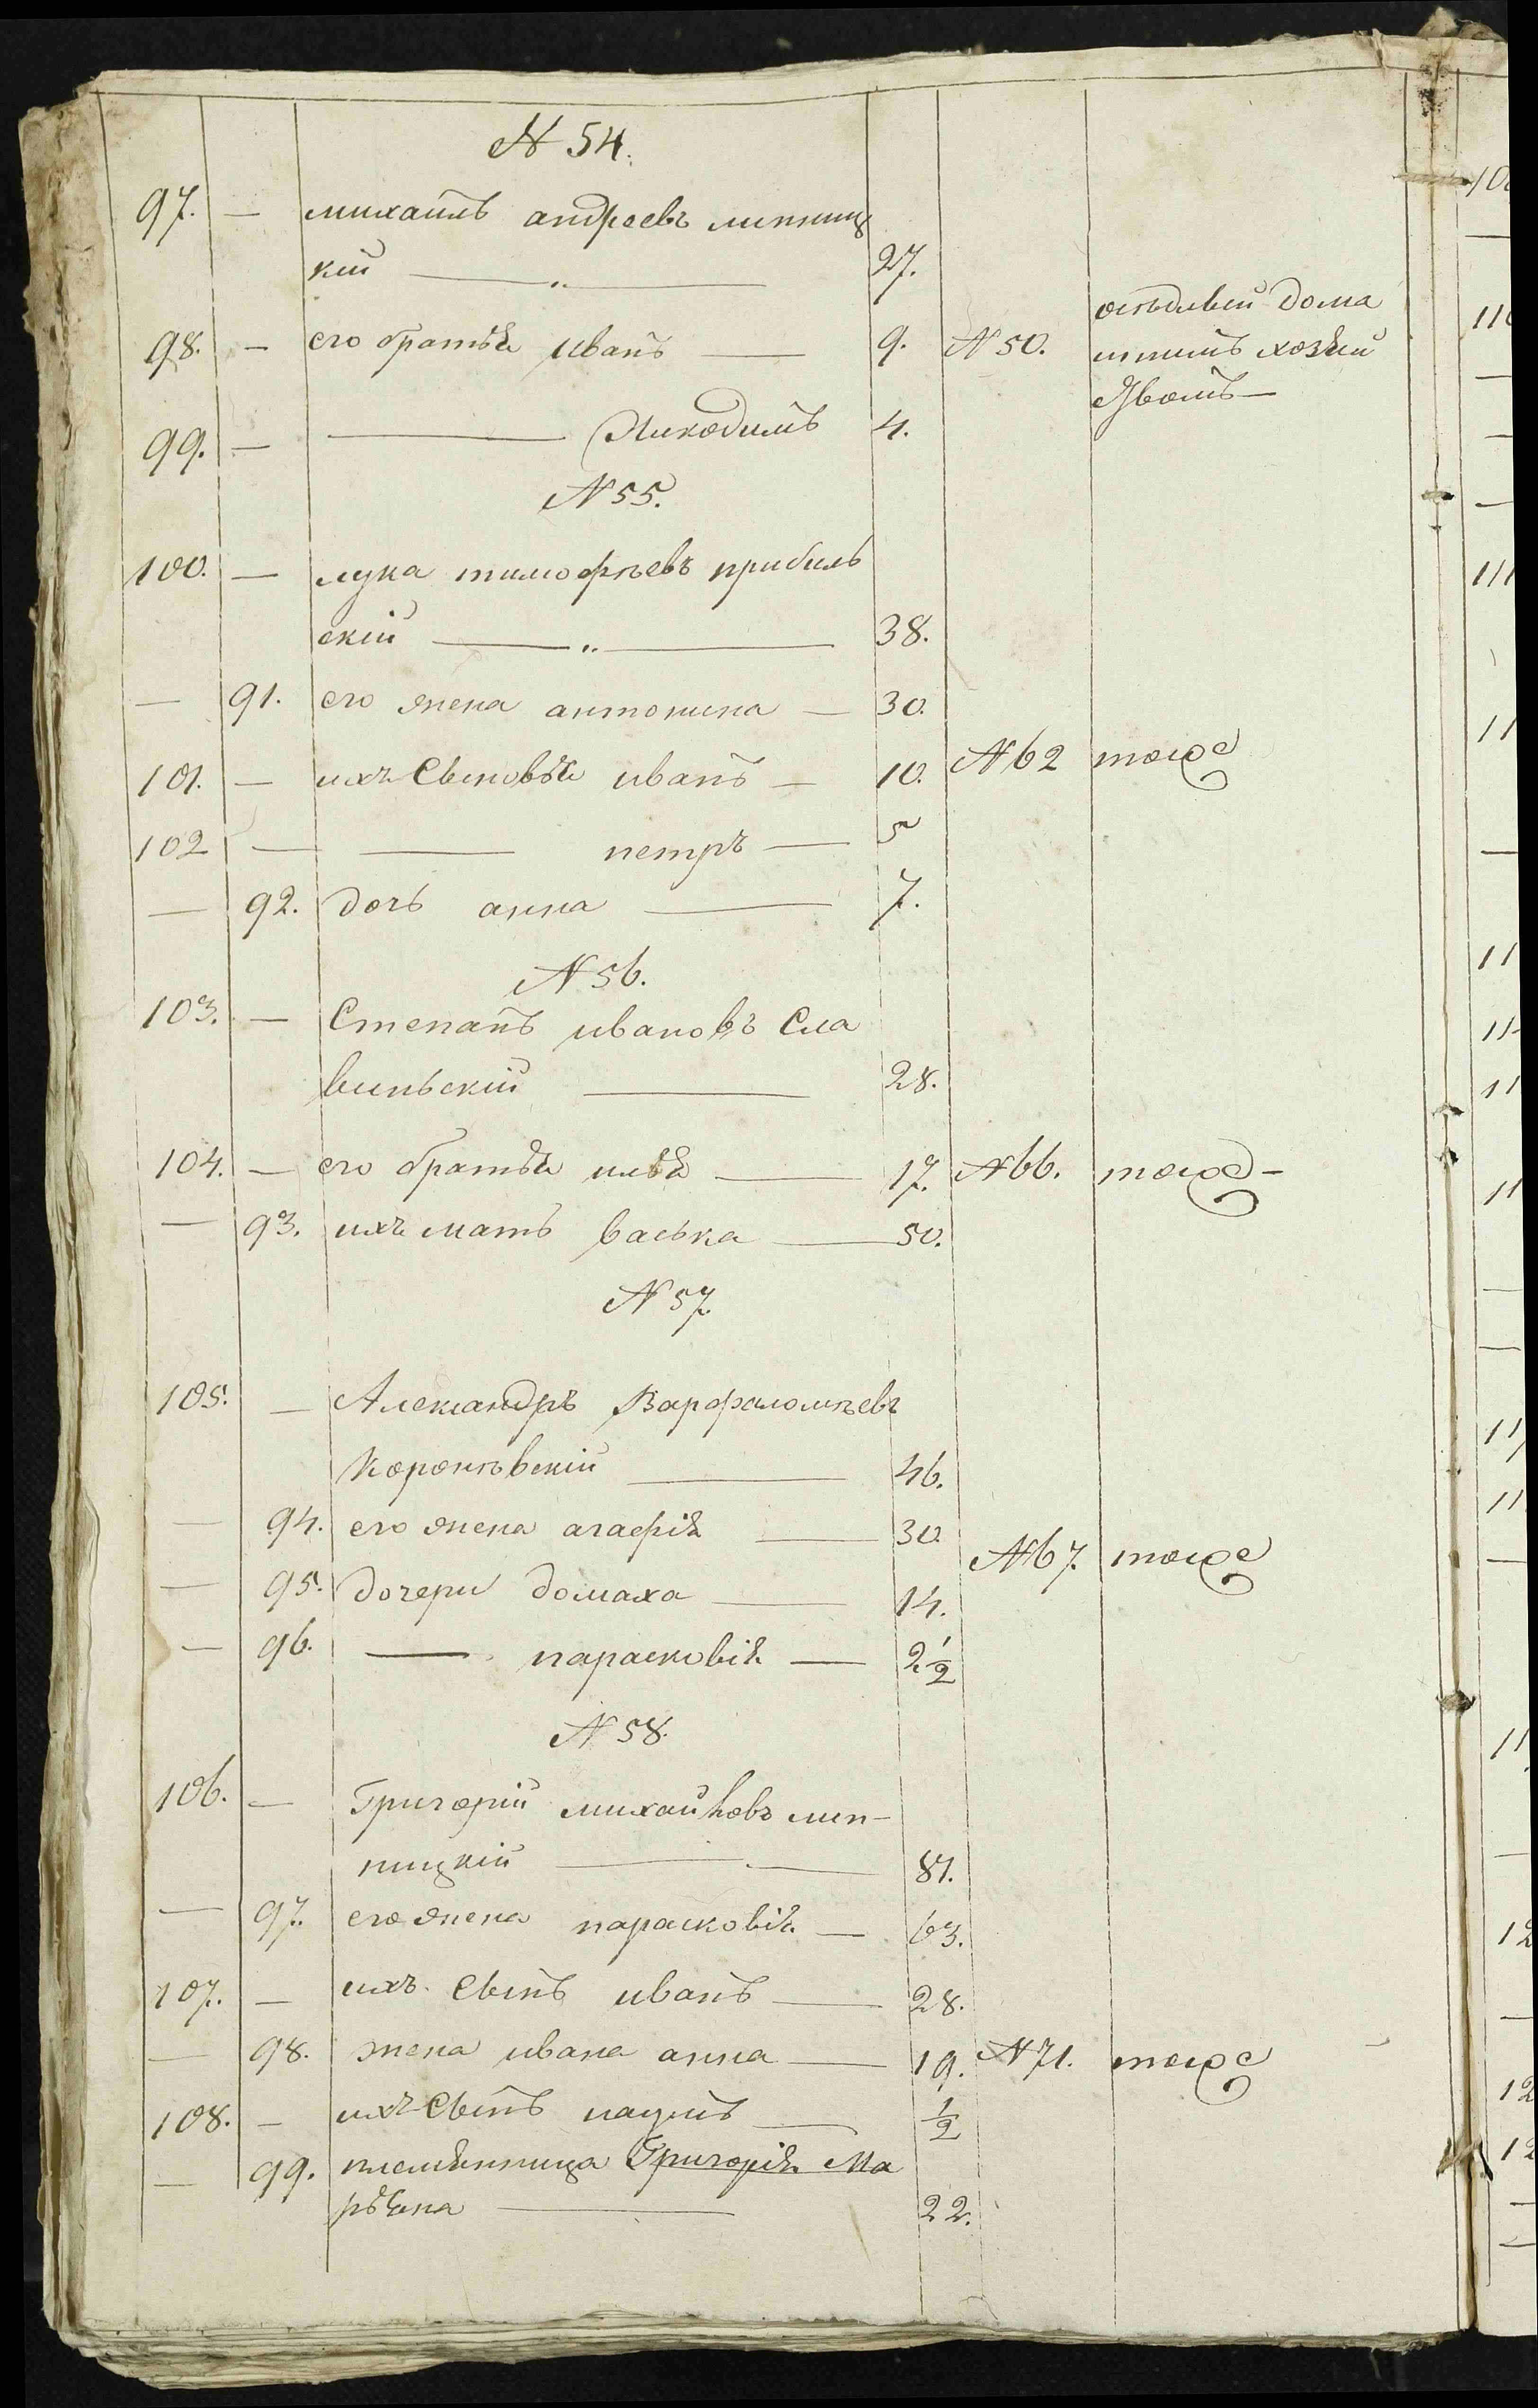 № 54.
97. — михаилъ андреевъ липниц
кій — 27.
98. — его братья иванъ — 9. № 50. осѣдлый дома
имѣитъ хозяй
ствомъ —
99. — — Никодимъ 4.
№ 55.
100. — лука тимофѣевъ прибиль
скій — 38.
— 91. его жена антонина — 30.
101. — ихъ Сыновья иванъ — 10. № 62 тоже
102 — — петръ — 5
— 92. дочь анна — 7.
№ 56.
103. — Степанъ ивановъ Сла
виньскій — 28.
104. — его братья илья — 17. № 66. тоже —
— 93. ихъ мать васька — 50.
№ 57.
105. — Александръ Варфаломѣевъ
Коронѣвскій — 46.
— 94. его жена агафія — 30. № 67. тоже
— 95. дочери домаха — 14.
— 96. — парасковія — 2 1/2
№ 58.
106. — Григорій михайловъ лип-
ницкій — 87.
— 97. его жена парасковія — 63.
107. — ихъ Сынъ иванъ — 28.
— 98. жена ивана анна — 19. № 71. тоже
108. — ихъ Сынъ наумъ — 1/2
— 99. племянница Григорія Ма
рьяна — 22.